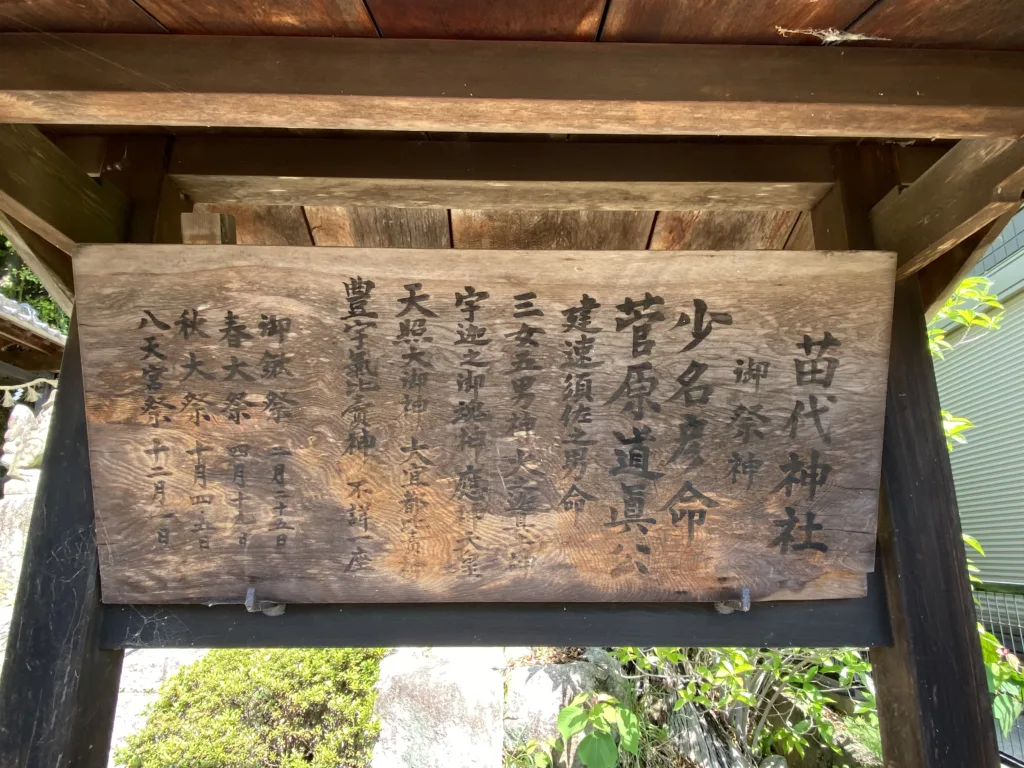 苗代神社
御祭神
少名彦命
菅原道眞公
建速須佐之男命
三女五男神 大
宇迦之御魂神 應神天皇
天照大御神 大宜都
豊宇氣比賣神 不詳一座
御鎮祭 二月二十五日
春大祭 四月十九日
秋大祭 十月四
八天宮祭 十二月一日